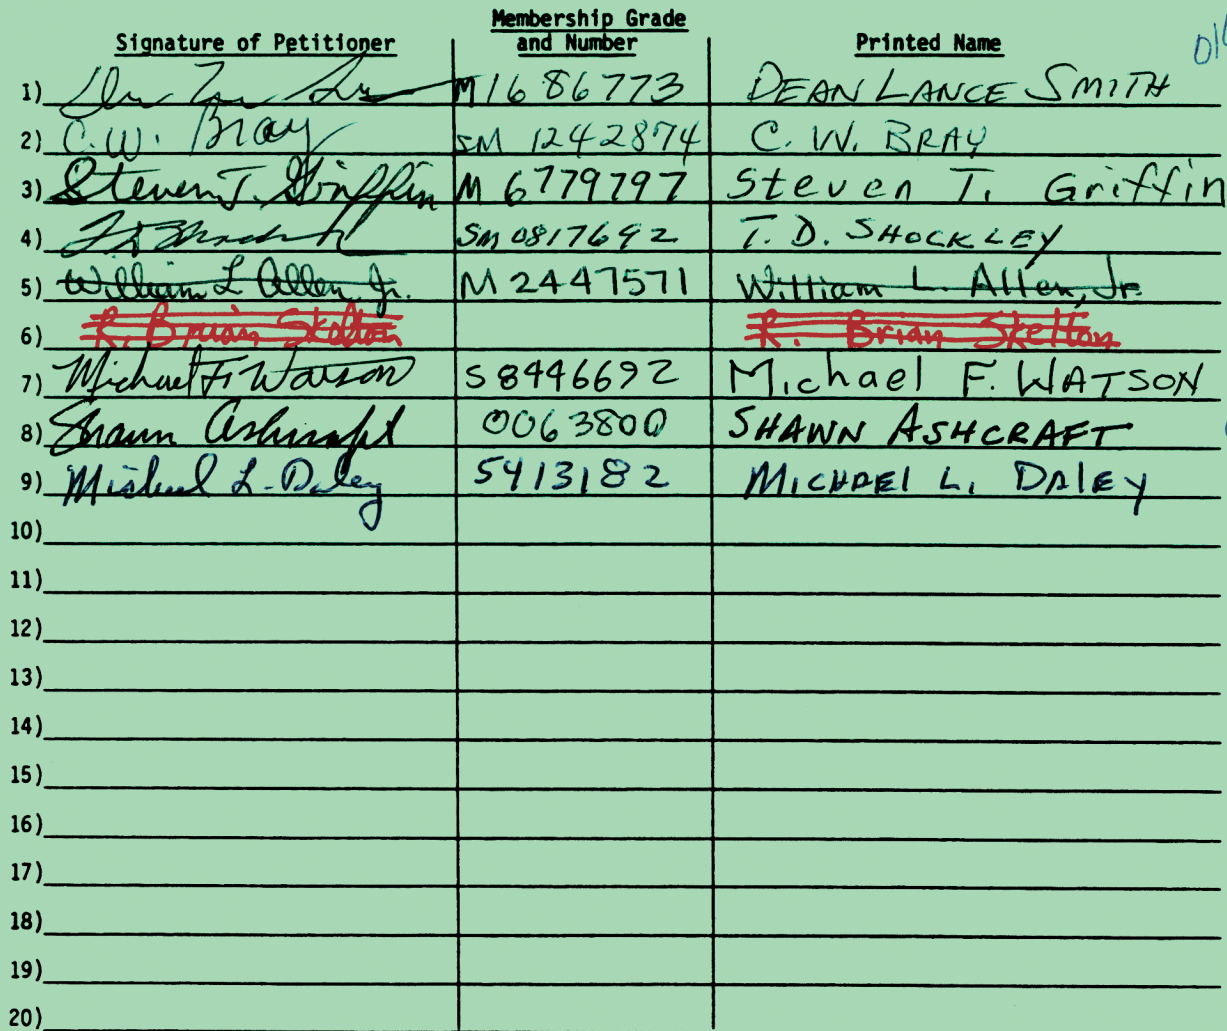 Signature of Petitioner Membership Grade and Number Printed Name
1) M1686773 DEAN LANCE SMITH
2) C.W. Bray SM 1242874 C. W. BRAY
3) Steven T. Griffin M 6779797 Steven T. Griffin
4) SM 0817692 T. D. SHOCKLEY
5) William L Allen, Jr. M 2447571 William L. Allen, Jr.
6) R. Brian Skelton R. Brian Skelton
7) Michael F. Watson S8446692 Michael F. WATSON
8) Shawn Ashcraft 0063800 SHAWN ASHCRAFT
9) Michael L. Daley 5413182 MICHAEL L. DALEY
10)
11)
12)
13)
14)
15)
16)
17)
18)
19)
20)